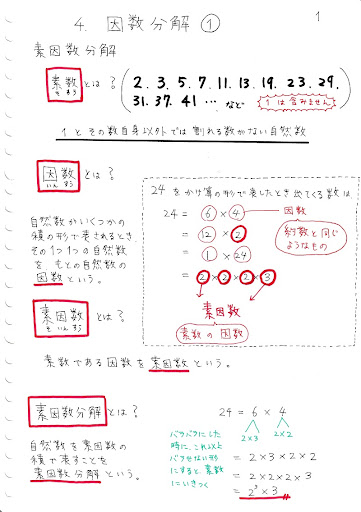 1
4. 因数分解 ①
素因数分解
素数 とは?
そすう
2. 3. 5. 7. 11. 13. 19. 23. 29.
31. 37. 41 … など
1は含みません
1とその数自身以外では割れる数がない自然数
因数 とは?
いんすう
自然数がいくつかの
積の形で表されるとき、
その1つ1つの自然数
を、もとの自然数の
因数という。
24をかけ算の形で表したとき出てくる数は、
24 = 6 × 4
因数
= 12 × 2
約数と同じ
ようなもの
= 1 × 24
= 2 × 2 × 2 × 3
素因数
素数の因数
素因数 とは?
そいんすう
素数である因数を素因数という。
素因数分解 とは?
自然数を素因数の
積で表すことを
素因数分解という。
24 = 6 × 4
2×3 2×2
バラバラにした
時に、これ以上
バラせない形
にすると、素数
にいきつく
= 2 × 3 × 2 × 2
= 2 × 2 × 2 × 3
= 2³ × 3